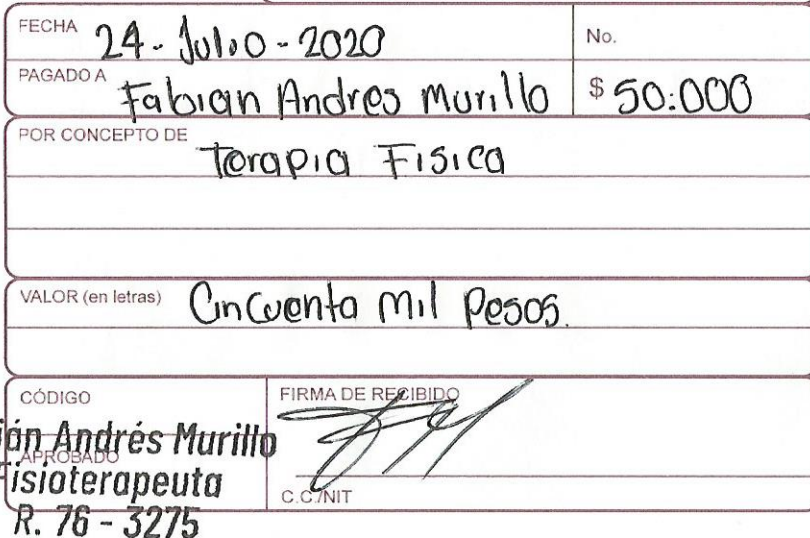 FECHA 24-Julio-2020 No.
PAGADO A Fabian Andres Murillo $ 50:000
POR CONCEPTO DE Terapia Fisica
VALOR (en letras) Cincuenta mil pesos.
CÓDIGO FIRMA DE RECIBIDO
ián Andrés Murillo
APROBADO
Fisioterapeuta
C.C./NIT
R. 76 - 3275